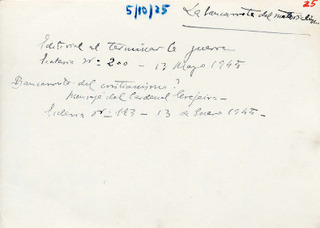 5/10/25
25
La bancarrota del materialismo
Editorial al terminar la guerra
Ecclesia Nº 200 - 13 Mayo 1945
Bancarrota del cristianismo?
Mensaje del Cardenal Cerejeira -
Ecclesia Nº 183 - 13 de Enero 1945 -